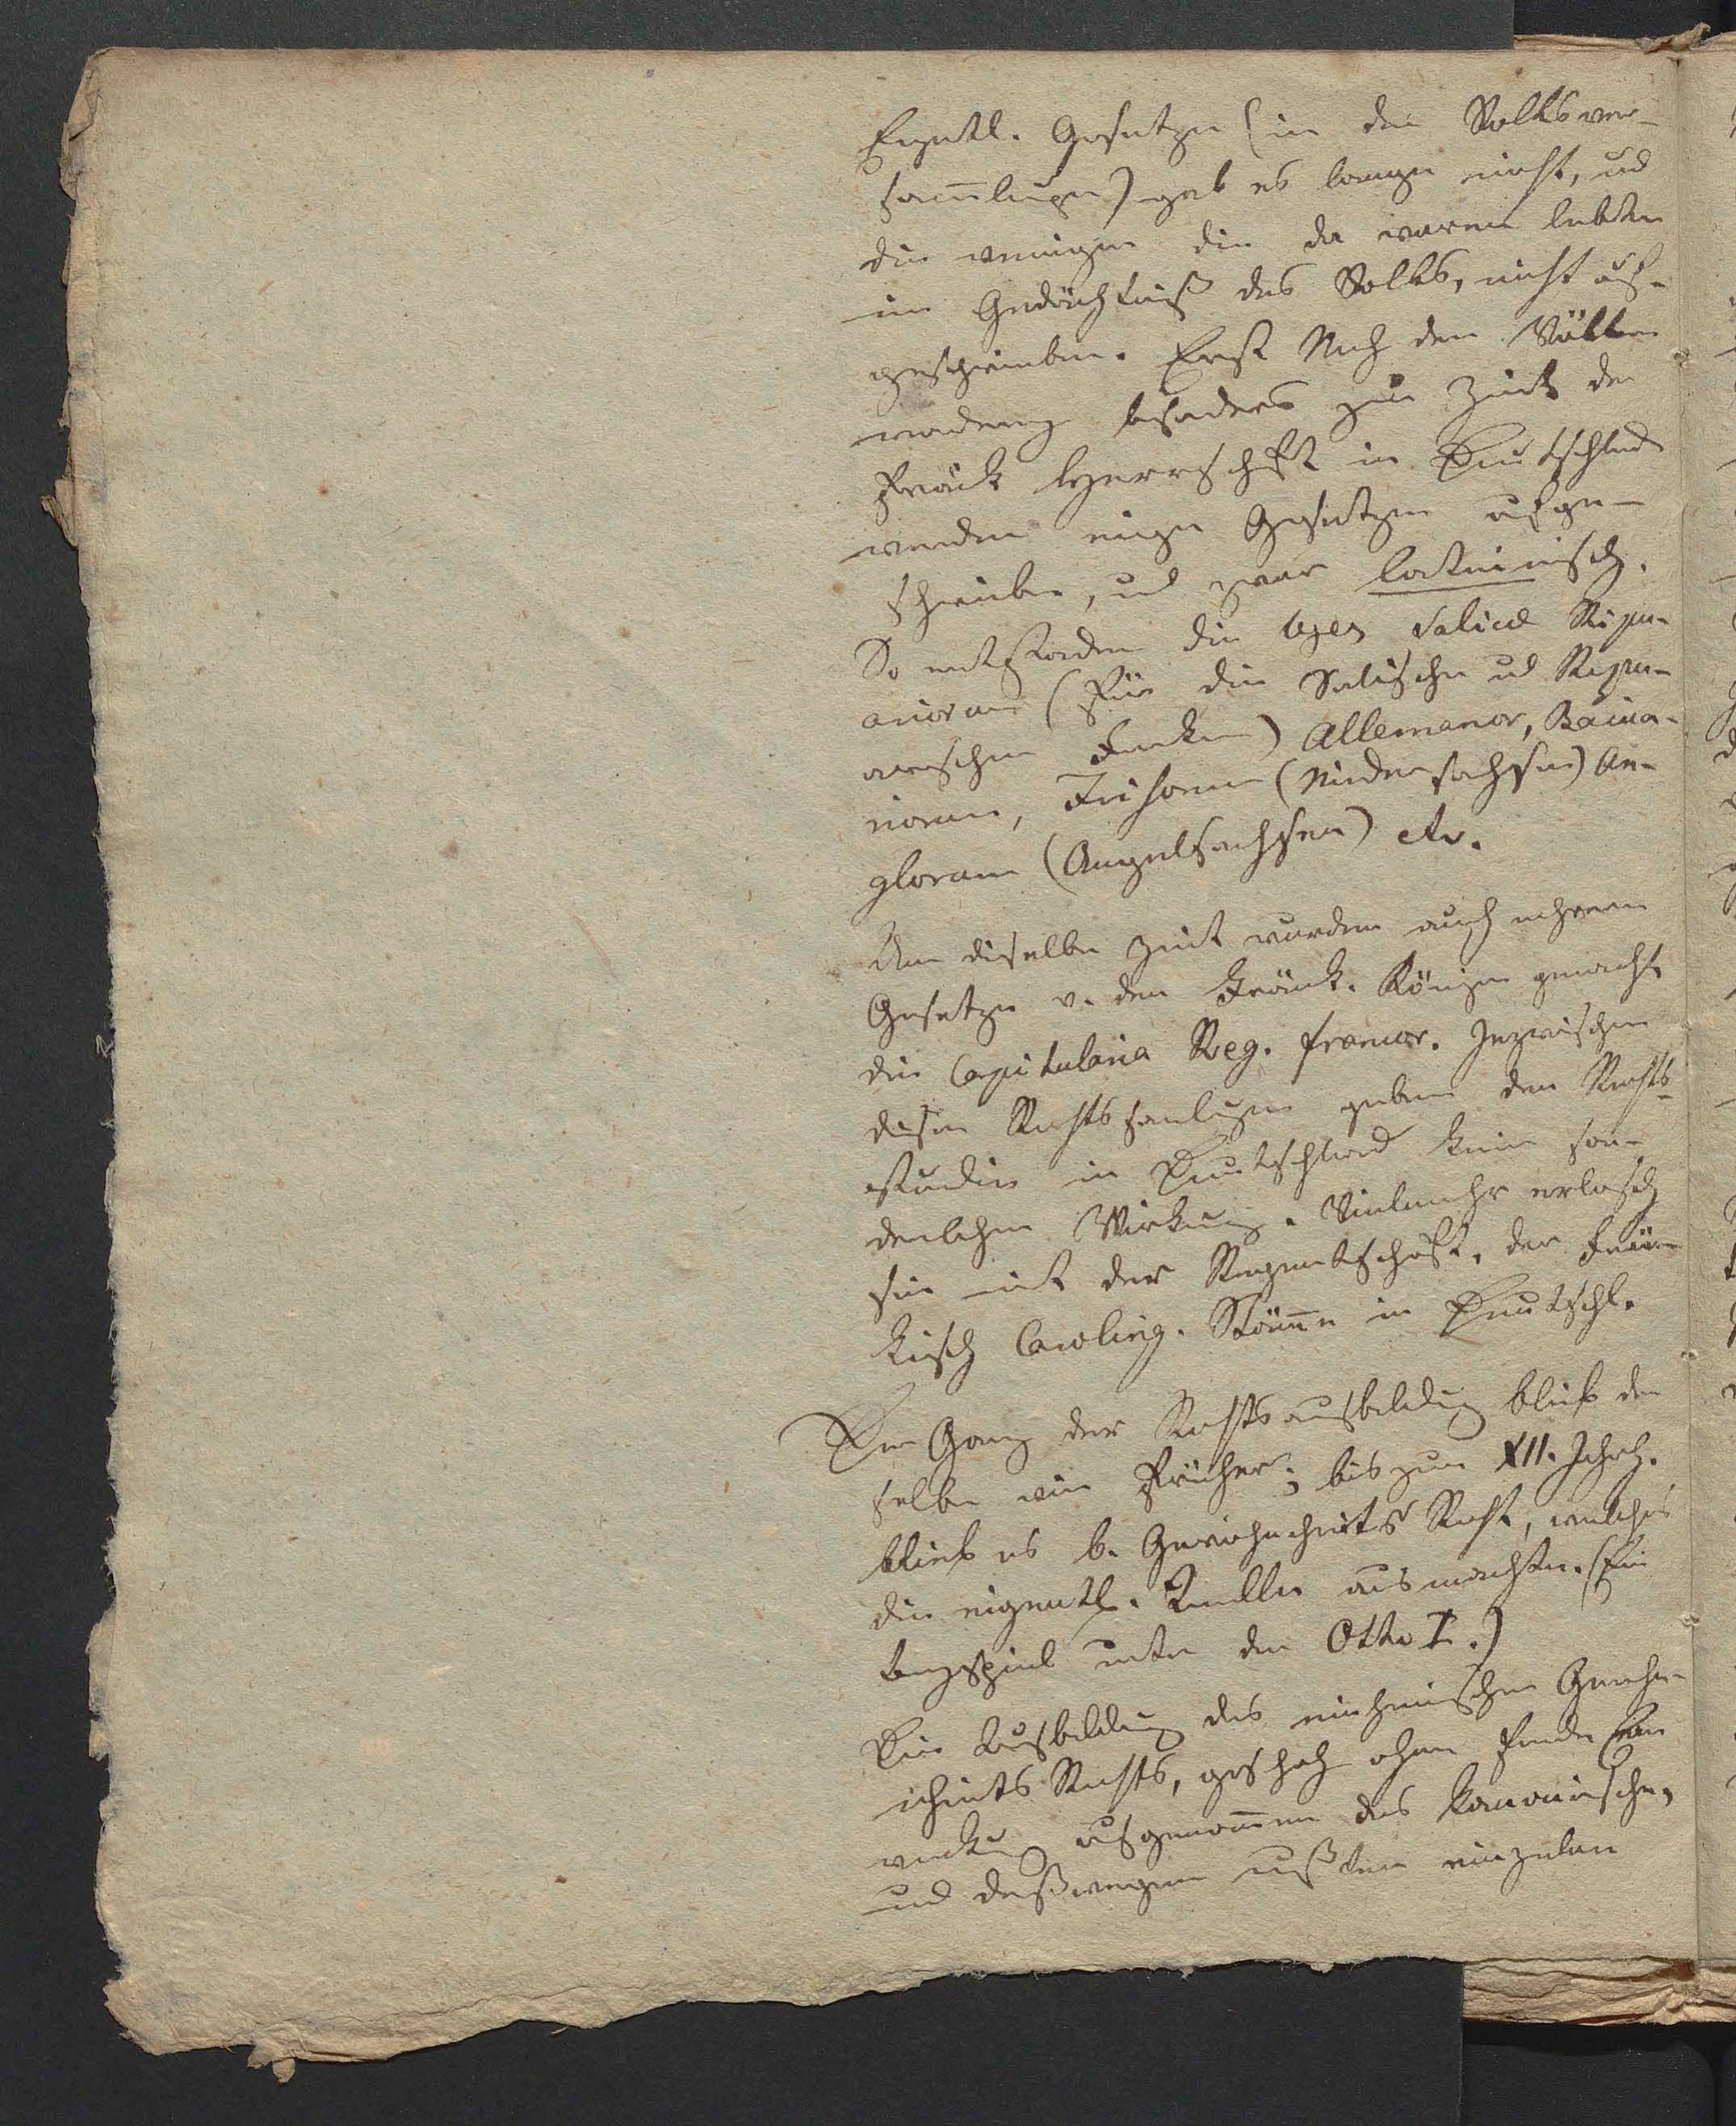 Eigentl. Gesetze (in den Volksver-
sam̄lungen) gab es lange nicht, und
die wenigen die da waren lebten
im Gedächtniß des Volks, nicht auf-
geschrieben. Erst Nach der Völker
wanderung besonders zur Zeit der
Fränk Herrschaft in Deutschland
werden einige Gesetze aufge-
schrieben, und zwar lateinisch.
So entstanden die leges Salicae Ripu-
ariorum (für die Salischen und Ripu-
arischen Franken) Allemanor, Baiua-
riorum, Frisonum (Niedersachsen) An-
glorum (Angelsachsen) etc.
Um dieselbe Zeit wurden auch mehrere
Gesetze v. den Fränk. Königen gemacht
die Capitularia Reg. francor. Inzwischen
diese Rechtssamlungen geben dem Rechts-
studium in Deutschland keine son-
derlichen Wirkung. Vielmehr erlosch
sie mit der Regentschaft, der Frän-
kisch Caroling. Stäm̄e in Deutschl.
Der Gang der Rechtsausbildung blieb der
selbe wie früher; bis zum XII. Jahrh.
blieb es b. Gewohnheits Recht, welches
die eigentl. Quelle ausmachte. (Ein
beyspiel unter den Otto I.)
Die Ausbildung des einheimischen Gewohn-
heits Rechts, geschah ohne fremde Ein
wirkung ausgenom̄en des kanonischen,
und deßwegen mußten einzelne